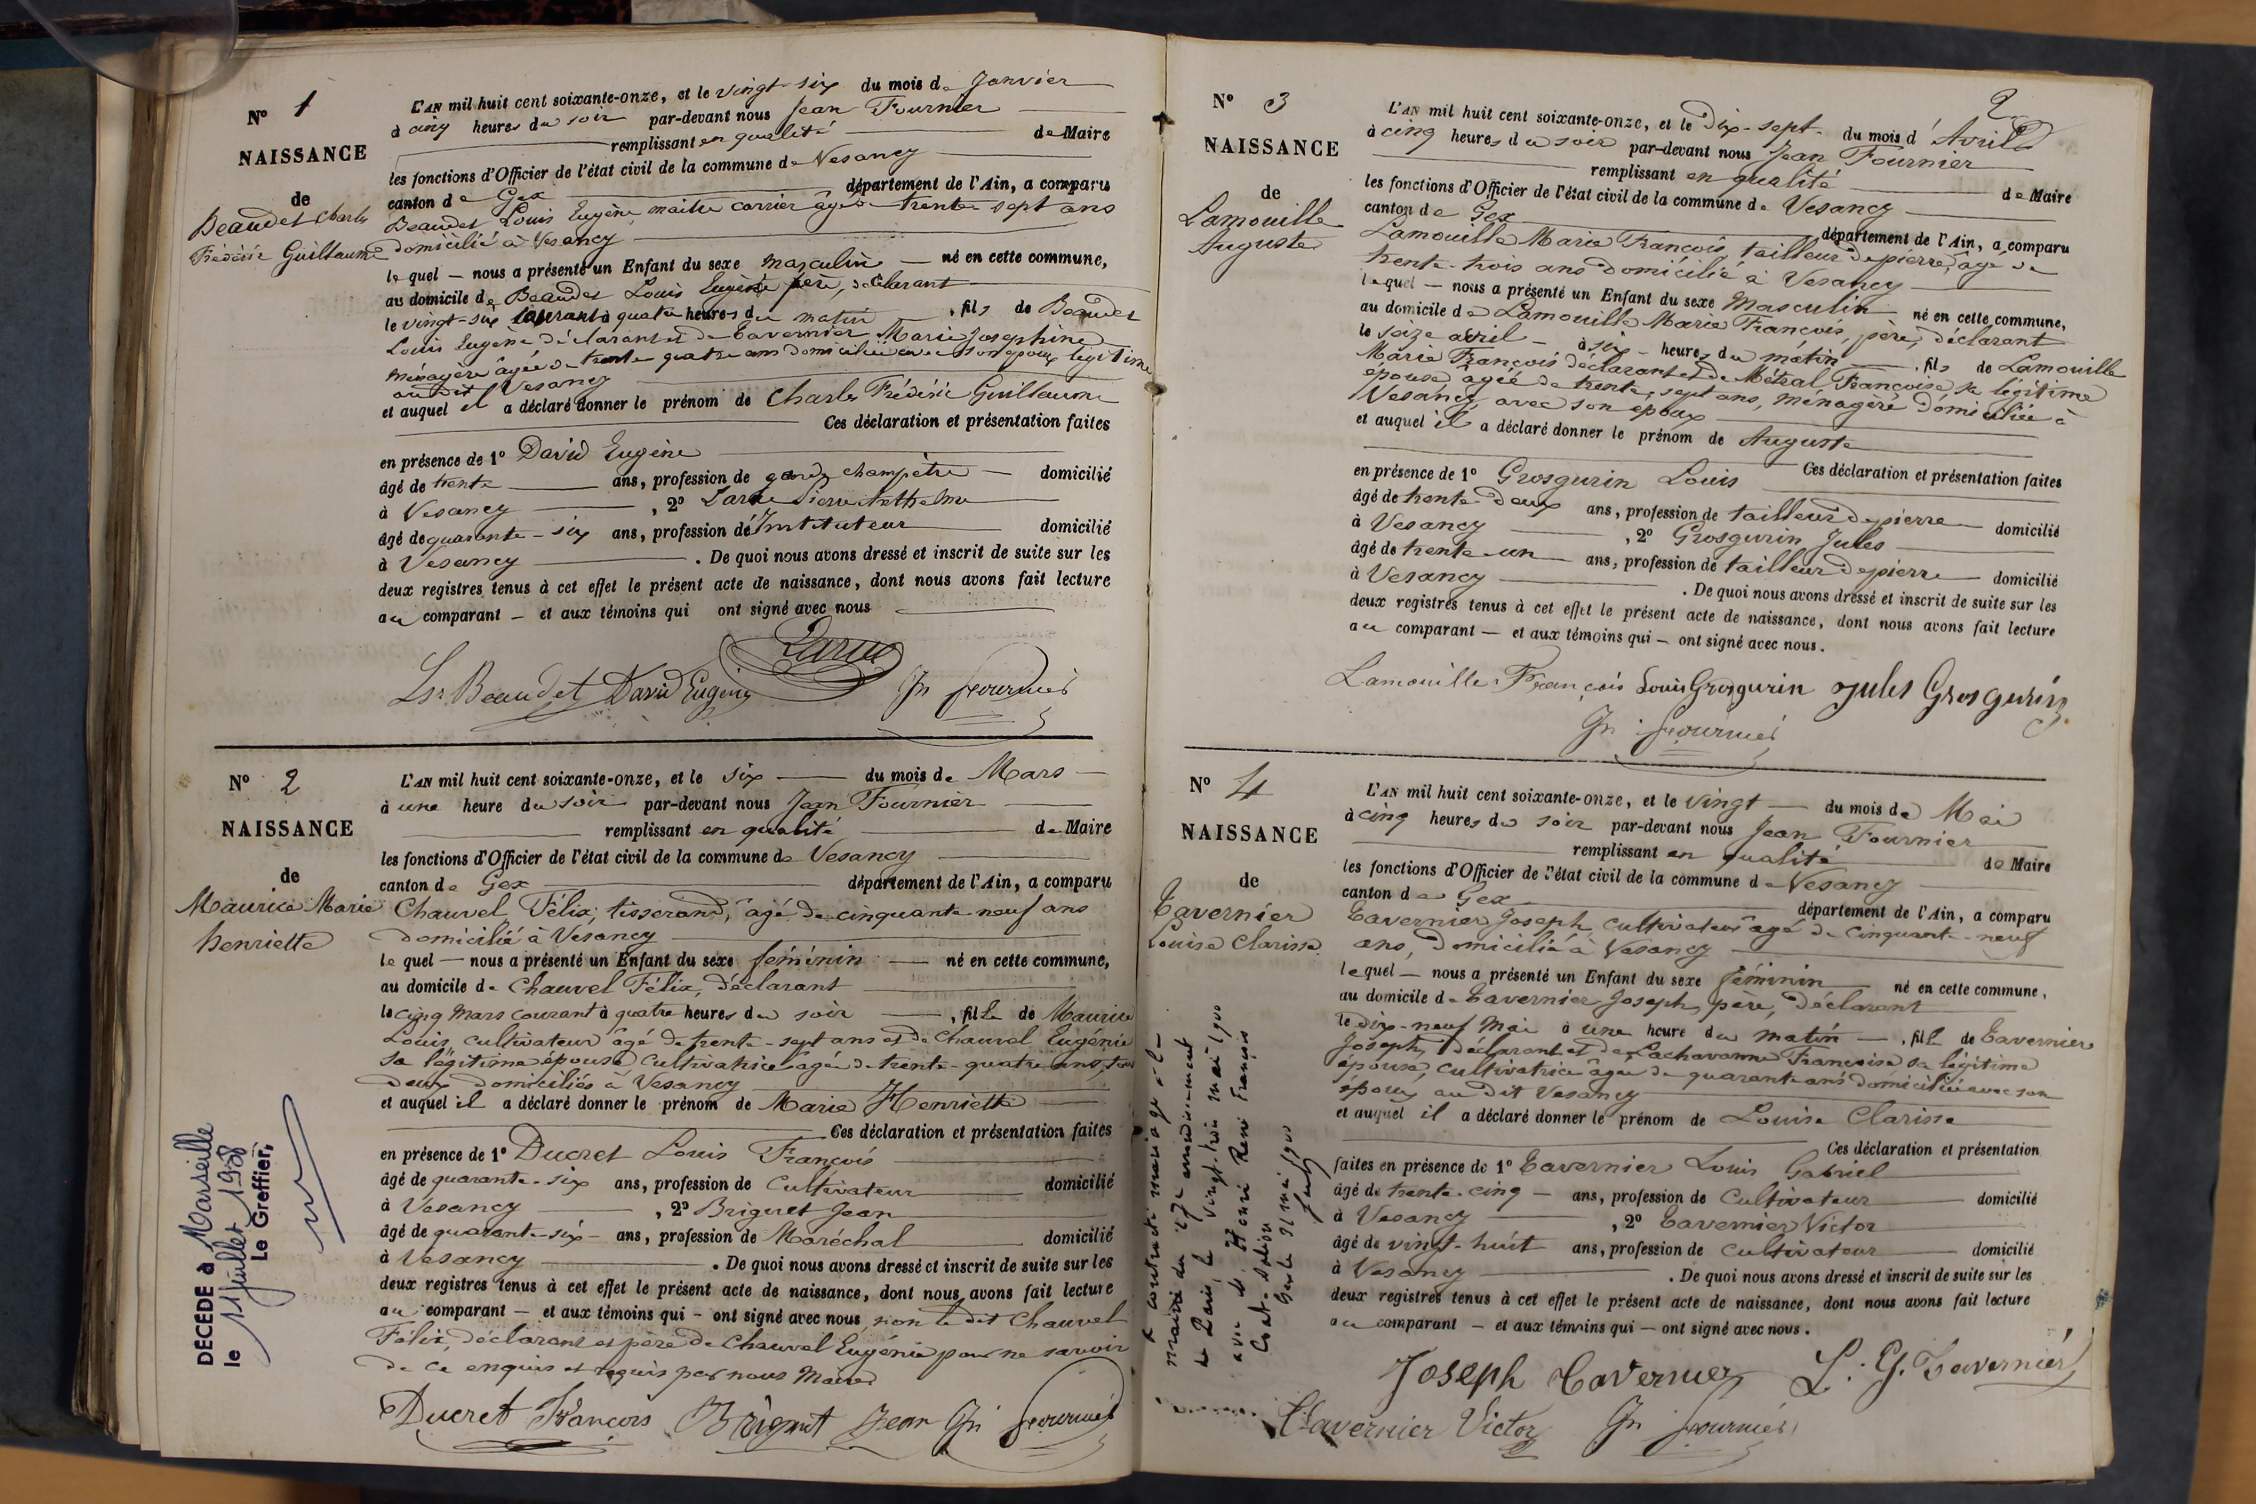 N° 1
NAISSANCE
de
Beaudet Charles
Frédéric Guillaume
L'AN mil huit cent soixante-onze, et le vingt-six du mois de Janvier
à cinq heures du soir par-devant nous Jean Fournier
remplissant en qualité de Maire
les fonctions d'Officier de l'état civil de la commune de Vesancy
canton de Gex département de l'Ain, a comparu
Beaudet Louis Eugène, maître carrier âgé de trente sept ans
domicilié à Vesancy
le quel — nous a présenté un Enfant du sexe masculin — né en cette commune,
au domicile de Beaudet Louis Eugène père, déclarant
le vingt-six courant à quatre heures du matin, fils de Beaudet
Louis Eugène déclarant et de Tavernier Marie Josephine
ménagère âgée de trente quatre ans domiciliée avec son époux légitime
au dit Vesancy
et auquel il a déclaré donner le prénom de Charles Frédéric Guillaume
Ces déclaration et présentation faites
en présence de 1° David Eugène
âgé de trente ans, profession de garde champêtre — domicilié
à Vesancy, 2° Larue Pierre Anthelme
âgé de quarante-six ans, profession d'Instituteur domicilié
à Vesancy. De quoi nous avons dressé et inscrit de suite sur les
deux registres tenus à cet effet le présent acte de naissance, dont nous avons fait lecture
au comparant — et aux témoins qui ont signé avec nous
Larue
Ls. Beaudet David Eugène Jn Fournier
N° 2
NAISSANCE
de
Maurice Marie
henriette
L'AN mil huit cent soixante-onze, et le six du mois de Mars
à une heure du soir par-devant nous Jean Fournier
remplissant en qualité de Maire
les fonctions d'Officier de l'état civil de la commune de Vesancy
canton de Gex département de l'Ain, a comparu
Chauvel Félix, tisserand, âgé de cinquante neuf ans
domicilié à Vesancy
le quel — nous a présenté un Enfant du sexe féminin — né en cette commune,
au domicile de Chauvel Félix, déclarant
le cinq Mars courant à quatre heures du soir, fille de Maurice
Louis cultivateur âgé de trente-sept ans et de Chauvel Eugénie
sa légitime épouse, cultivatrice âgée de trente-quatre ans, tous
deux domiciliés à Vesancy
et auquel il a déclaré donner le prénom de Marie Henriette
Ces déclaration et présentation faites
en présence de 1° Ducret Louis François
âgé de quarante-six ans, profession de Cultivateur domicilié
à Vesancy, 2° Briguet Jean
âgé de quarante-six — ans, profession de Maréchal domicilié
à Vesancy. De quoi nous avons dressé et inscrit de suite sur les
deux registres tenus à cet effet le présent acte de naissance, dont nous avons fait lecture
au comparant — et aux témoins qui — ont signé avec nous, non le dit Chauvel
Félix, déclarant et père de Chauvel Eugénie pour ne savoir
de ce enquis et requis par nous Maire
Ducret François Briguet Jean Jn Fournier
DECEDE à Marseille
le 11 juillet 1958
Le Greffier,
2
N° 3
NAISSANCE
de
Lamouille
Auguste
L'AN mil huit cent soixante-onze, et le Dix-sept du mois d'Avril
à cinq heures du soir par-devant nous Jean Fournier
remplissant en qualité de Maire
les fonctions d'Officier de l'état civil de la commune de Vesancy
canton de Gex département de l'Ain, a comparu
Lamouille Marie François, tailleur de pierre, âgé de
trente-trois ans domicilié à Vesancy
le quel — nous a présenté un Enfant du sexe Masculin né en cette commune,
au domicile de Lamouille Marie François, père, déclarant
le seize avril — à six — heures du matin, fils de Lamouille
Marie François déclarant et de Métral Françoise sa légitime
épouse, âgée de trente-sept ans, ménagère domiciliée à
Vesancy avec son époux
et auquel il a déclaré donner le prénom de Auguste
Ces déclaration et présentation faites
en présence de 1° Grosgurin Louis
âgé de trente-deux ans, profession de tailleur de pierre domicilié
à Vesancy, 2° Grosgurin Jules
âgé de trente-un ans, profession de tailleur de pierre domicilié
à Vesancy. De quoi nous avons dressé et inscrit de suite sur les
deux registres tenus à cet effet le présent acte de naissance, dont nous avons fait lecture
au comparant — et aux témoins qui — ont signé avec nous.
Lamouille François Louis Grosgurin Jules Grosgurin
Jn Fournier
N° 4
NAISSANCE
de
Tavernier
Louise Clarisse
L'AN mil huit cent soixante-onze, et le vingt du mois de Mai
à cinq heures du soir par-devant nous Jean Fournier
remplissant en qualité de Maire
les fonctions d'Officier de l'état civil de la commune de Vesancy
canton de Gex département de l'Ain, a comparu
Tavernier Joseph, cultivateur âgé de cinquante-neuf
ans, domicilié à Vesancy
le quel — nous a présenté un Enfant du sexe féminin né en cette commune,
au domicile de Tavernier Joseph, père, déclarant
le dix-neuf Mai à une heure du matin —, fille de Tavernier
Joseph, déclarant et de Lachavanne Françoise sa légitime
épouse, cultivatrice âgée de quarante ans domiciliée avec son
époux au dit Vesancy
et auquel il a déclaré donner le prénom de Louise Clarisse
Ces déclaration et présentation
faites en présence de 1° Tavernier Louis Gabriel
âgé de trente-cinq — ans, profession de Cultivateur domicilié
à Vesancy, 2° Tavernier Victor
âgé de vingt-huit ans, profession de cultivateur domicilié
à Vesancy. De quoi nous avons dressé et inscrit de suite sur les
deux registres tenus à cet effet le présent acte de naissance, dont nous avons fait lecture
au comparant — et aux témoins qui — ont signé avec nous.
Joseph Tavernier L. G. Tavernier
Tavernier Victor Jn Fournier
a contracté mariage à la
mairie du 17e arrondissement
de Paris, le vingt-trois mai 1900
avec M. Henri René François
Gex le 31 mai 1900